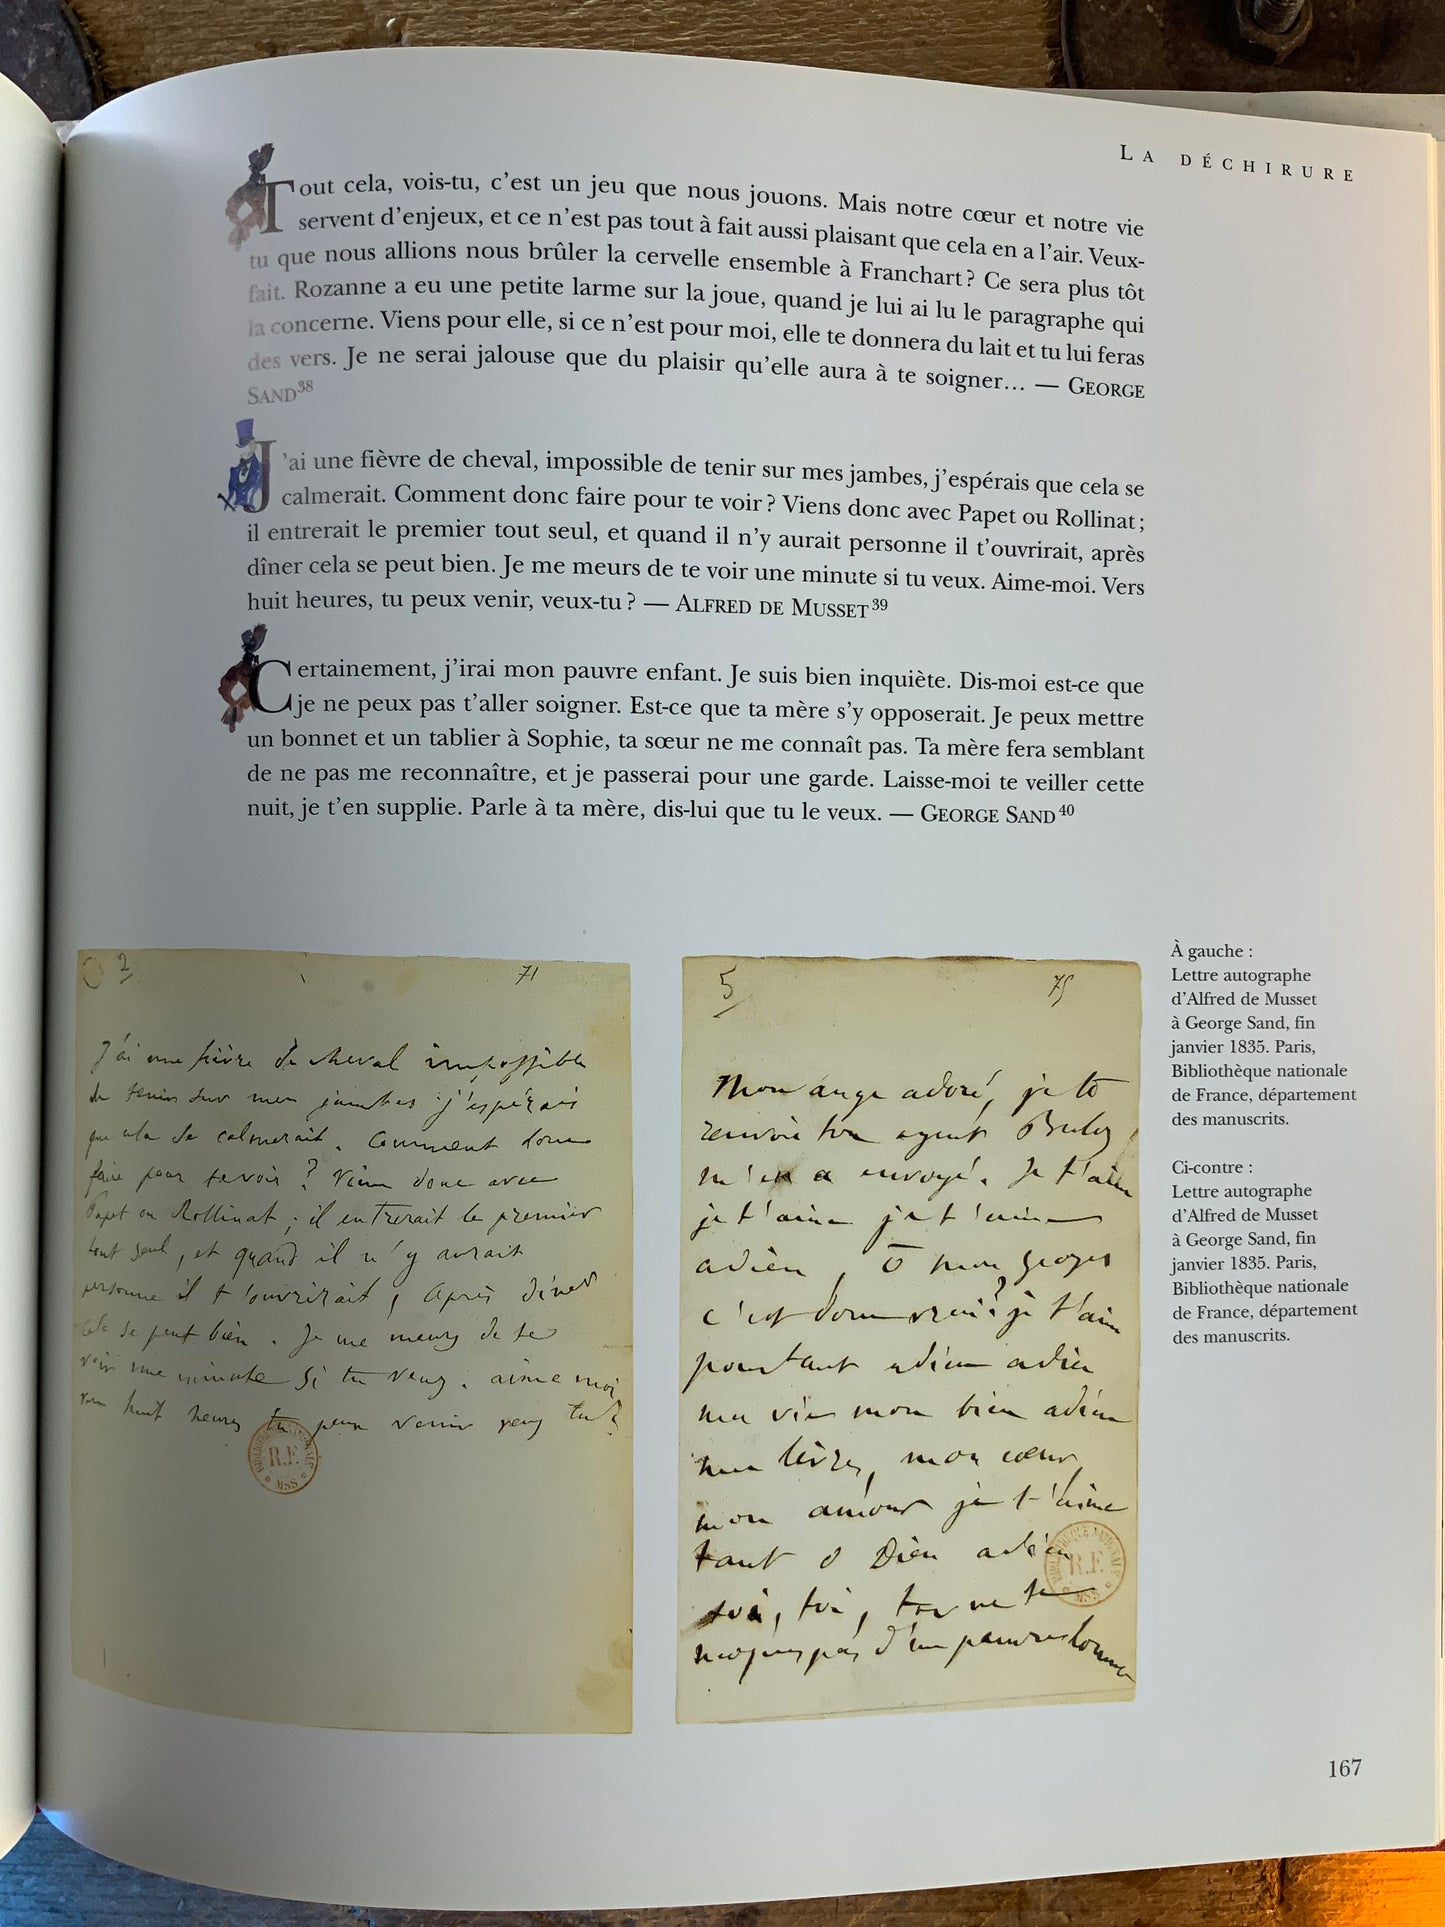 LA DÉCHIRURE
Tout cela, vois-tu, c’est un jeu que nous jouons. Mais notre cœur et notre vie
servent d’enjeux, et ce n’est pas tout à fait aussi plaisant que cela en a l’air. Veux-
tu que nous allions nous brûler la cervelle ensemble à Franchart ? Ce sera plus tôt
fait. Rozanne a eu une petite larme sur la joue, quand je lui ai lu le paragraphe qui
la concerne. Viens pour elle, si ce n’est pour moi, elle te donnera du lait et tu lui feras
des vers. Je ne serai jalouse que du plaisir qu’elle aura à te soigner… — GEORGE
SAND38
J’ai une fièvre de cheval, impossible de tenir sur mes jambes, j’espérais que cela se
calmerait. Comment donc faire pour te voir ? Viens donc avec Papet ou Rollinat ;
il entrerait le premier tout seul, et quand il n’y aurait personne il t’ouvrirait, après
dîner cela se peut bien. Je me meurs de te voir une minute si tu veux. Aime-moi. Vers
huit heures, tu peux venir, veux-tu ? — ALFRED DE MUSSET39
Certainement, j’irai mon pauvre enfant. Je suis bien inquiète. Dis-moi est-ce que
je ne peux pas t’aller soigner. Est-ce que ta mère s’y opposerait. Je peux mettre
un bonnet et un tablier à Sophie, ta sœur ne me connaît pas. Ta mère fera semblant
de ne pas me reconnaître, et je passerai pour une garde. Laisse-moi te veiller cette
nuit, je t’en supplie. Parle à ta mère, dis-lui que tu le veux. — GEORGE SAND40
2 71
J'ai une fièvre de cheval impossible
de tenir sur mes jambes j'espérais
que cela se calmerait. Comment donc
faire pour te voir ? Viens donc avec
Papet ou Rollinat ; il entrerait le premier
tout seul, et quand il n'y aurait
personne il t'ouvrirait, après diner
cela se peut bien. Je me meurs de te
voir une minute si tu veux. aime moi
vers huit heures tu peux venir veux tu ?
BIBLIOTHÈQUE NATIONALE
R.F.
MSS
5 75
Mon ange adoré, je te
renvoie ton argent Buloz
m'en a envoyé. Je t'aime
je t'aime je t'aime
adieu, ô mon george
c'est donc vrai ? je t'aime
pourtant adieu adieu
ma vie mon bien adieu
mes lèvres, mon cœur
mon amour je t'aime
tant ô Dieu adieu
toi, toi, toi ne te
moques pas d'un pauvre homme
BIBLIOTHÈQUE NATIONALE
R.F.
MSS
À gauche :
Lettre autographe
d’Alfred de Musset
à George Sand, fin
janvier 1835. Paris,
Bibliothèque nationale
de France, département
des manuscrits.
Ci-contre :
Lettre autographe
d’Alfred de Musset
à George Sand, fin
janvier 1835. Paris,
Bibliothèque nationale
de France, département
des manuscrits.
167